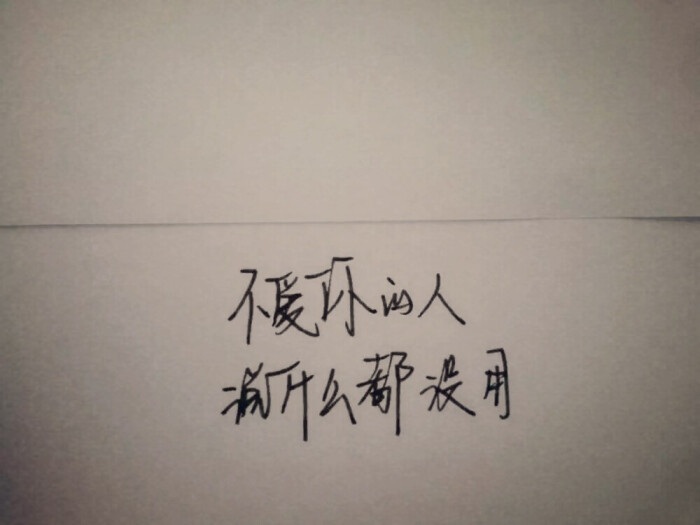 不爱你的人
说什么都没用